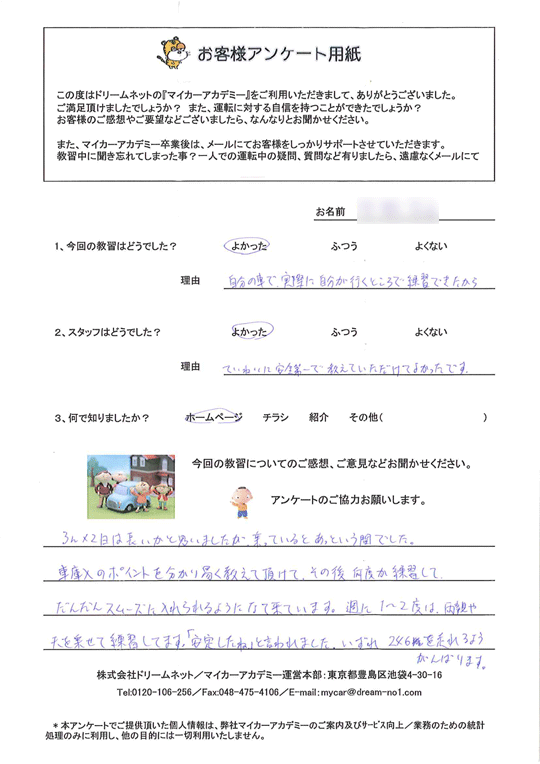 お客様アンケート用紙
この度はドリームネットの『マイカーアカデミー』をご利用いただきまして、ありがとうございました。
ご満足頂けましたでしょうか? また、運転に対する自信を持つことができたでしょうか?
お客様のご感想やご要望などございましたら、なんなりとお聞かせください。
また、マイカーアカデミー卒業後は、メールにてお客様をしっかりサポートさせていただきます。
教習中に聞き忘れてしまった事?一人での運転中の疑問、質問など有りましたら、遠慮なくメールにて
お名前
1、今回の教習はどうでした? よかった ふつう よくない
理由 自分の車で、実際に自分が行くところで練習できたから
2、スタッフはどうでした? よかった ふつう よくない
理由 ていねいに安全第一で教えていただけてよかったです。
3、何で知りましたか? ホームページ チラシ 紹介 その他( )
今回の教習についてのご感想、ご意見などお聞かせください。
アンケートのご協力お願いします。
3h×2日は長いかと思いましたが、乗っているとあっという間でした。
車庫入のポイントを分かり易く教えて頂けて、その後何度か練習して、
だんだんスムーズに入れられるようになって来ています。週に1〜2度は、母親や
夫を乗せて練習してます。「安定したね」と言われました。いずれ を走れるよう
がんばります。
株式会社ドリームネット/マイカーアカデミー運営本部:東京都豊島区池袋4-30-16
Tel:0120-106-256/Fax:048-475-4106/E-mail:mycar@dream-no1.com
*本アンケートでご提供頂いた個人情報は、弊社マイカーアカデミーのご案内及びサービス向上/業務のための統計
処理のみに利用し、他の目的には一切利用いたしません。